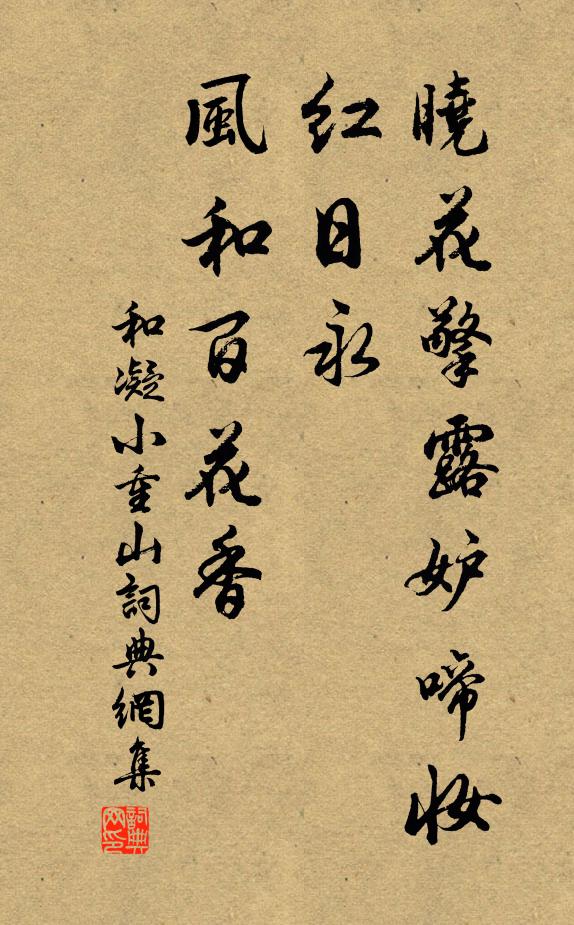 曉花擎露妒啼妝
紅日永
風和百花香
和凝小重山詞典網集
詞典網印